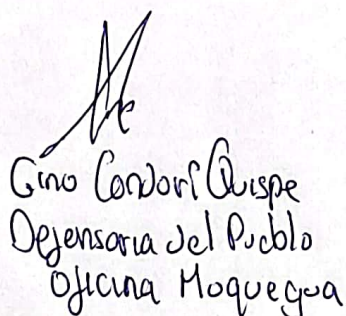 Gino Condori Quispe
Defensoria del Pueblo
Oficina Moquegua